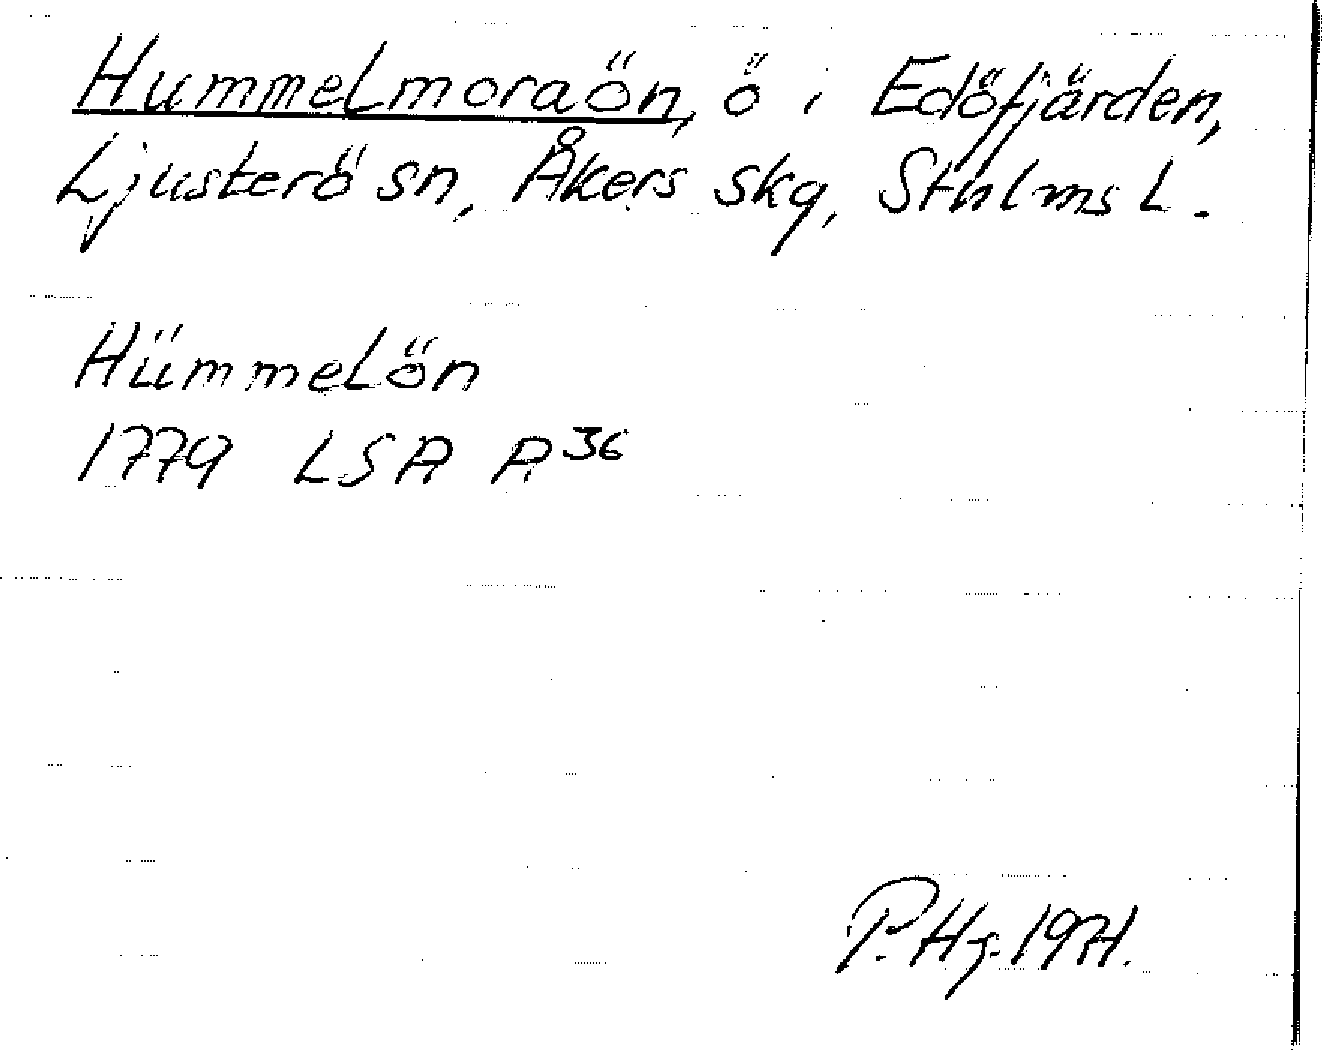 Hummelmoraön, ö i Edöfjärden,
Ljusterö sn, Åkers skg, Sthlms l.
Hümmelön
1779 LSA A36
P. Hg. 1971.